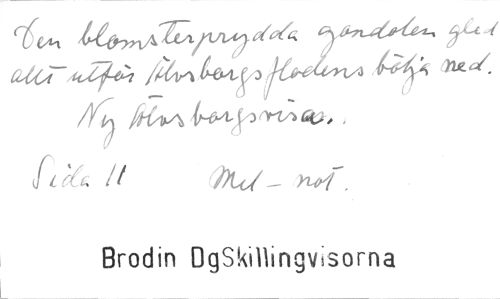 Den blomsterprydda gondolen gled
allt utför Älvsborgsflodens bölja ned.
Ny Älvsborgsvisa.
Sida 11 Mel - not.
Brodin DgSkillingvisorna